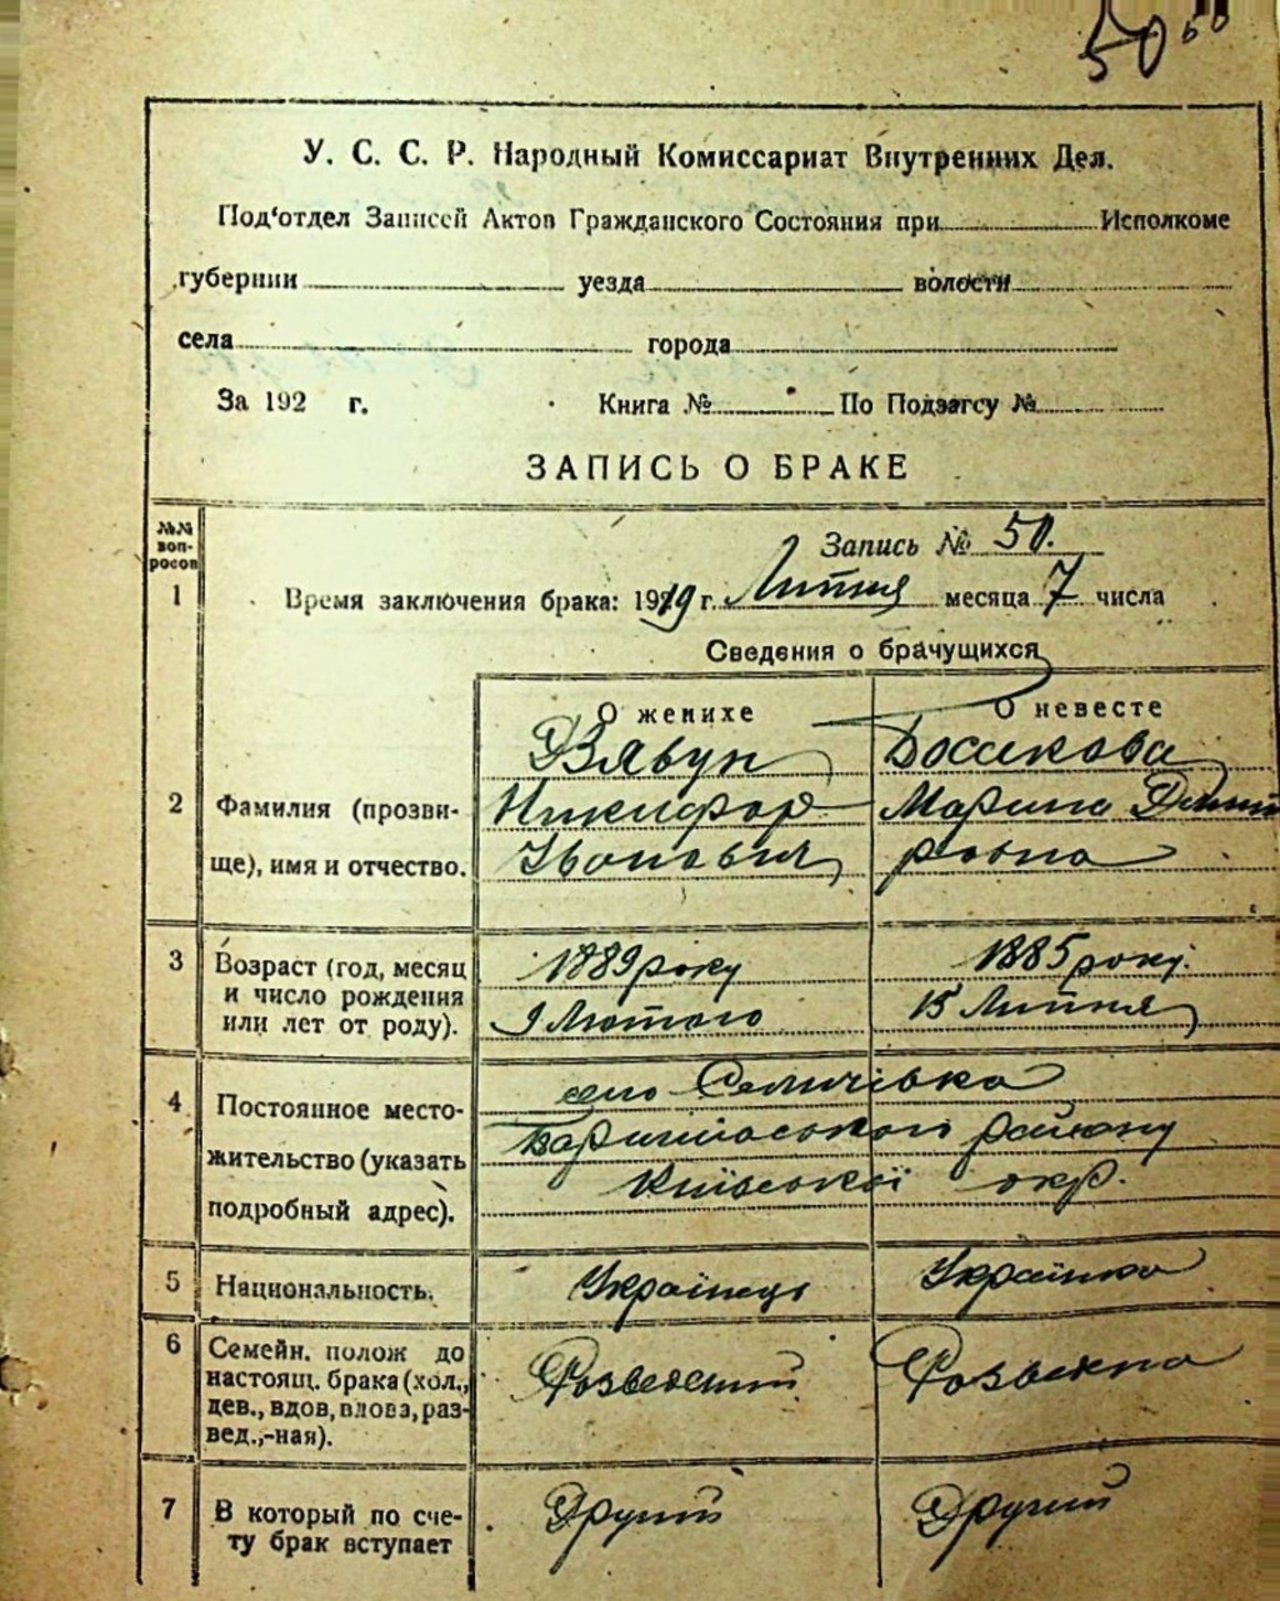 50
У. С. С. Р. Народный Комиссариат Внутренних Дел.
Под'отдел Записей Актов Гражданского Состояния при Исполкоме
губернии уезда волости
села города
За 192 г. Книга № По Подзагсу №
ЗАПИСЬ О БРАКЕ
№№ вопросов
Запись № 50.
1 Время заключения брака: 1919 г. Липня месяца 7 числа
Сведения о брачущихся
О женихе О невесте
Дзявун Босикова
2 Фамилия (прозви- Никифор Марина Дмит
ще), имя и отчество. Іванович ровна
3 Возраст (год, месяц 1889 року 1885 року.
и число рождения 9 Лютого 15 Липня
или лет от роду).
село Селичівка
4 Постоянное место- Баришівського району
жительство (указать Київської окр.
подробный адрес).
5 Национальность. Українець Українка
6 Семейн. полож до
настоящ. брака (хол., Розведений Розведена
дев., вдов, вдова, раз-
вед.,-ная).
7 В который по сче- Другий Другий
ту брак вступает